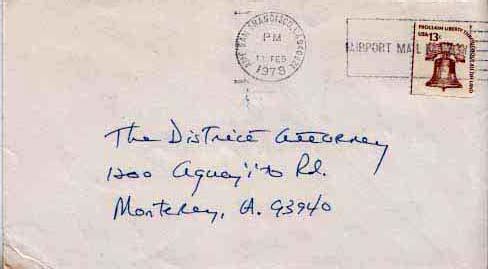 SAN FRANCISCO, CA
PM
FEB
AIRPORT MAIL
PROCLAIM LIBERTY THROUGHOUT ALL THE LAND
USA 13c
The District Attorney
1200 Aguajito Rd.
Monterey, CA. 93940